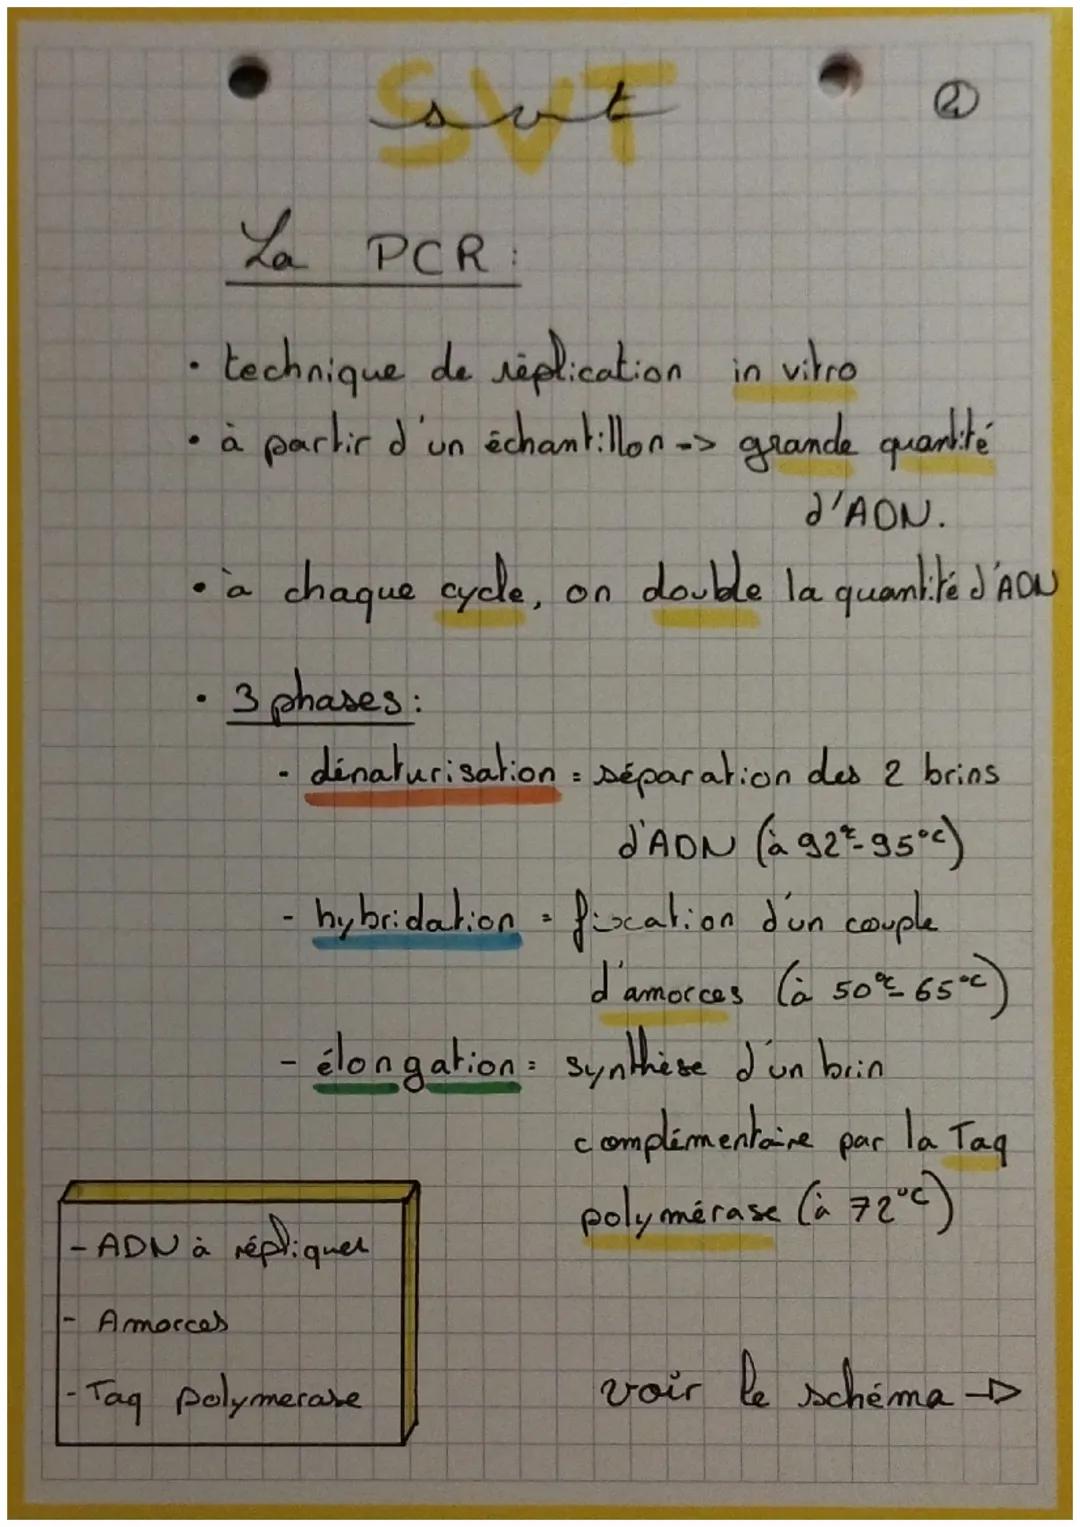 SVT
svt
2
La PCR :
• technique de réplication in vitro
• à partir d'un échantillon -> grande quantité
d'ADN.
• à chaque cycle, on double la quantité d'ADN
• 3 phases :
- dénaturisation = séparation des 2 brins
d'ADN (à 92°C-95°C)
- hybridation = fixation d'un couple
d'amorces (à 50°C-65°C)
- élongation = synthèse d'un brin
complémentaire par la Taq
polymérase (à 72°C)
- ADN à répliquer
- Amorces
- Taq polymerase
voir le schéma →